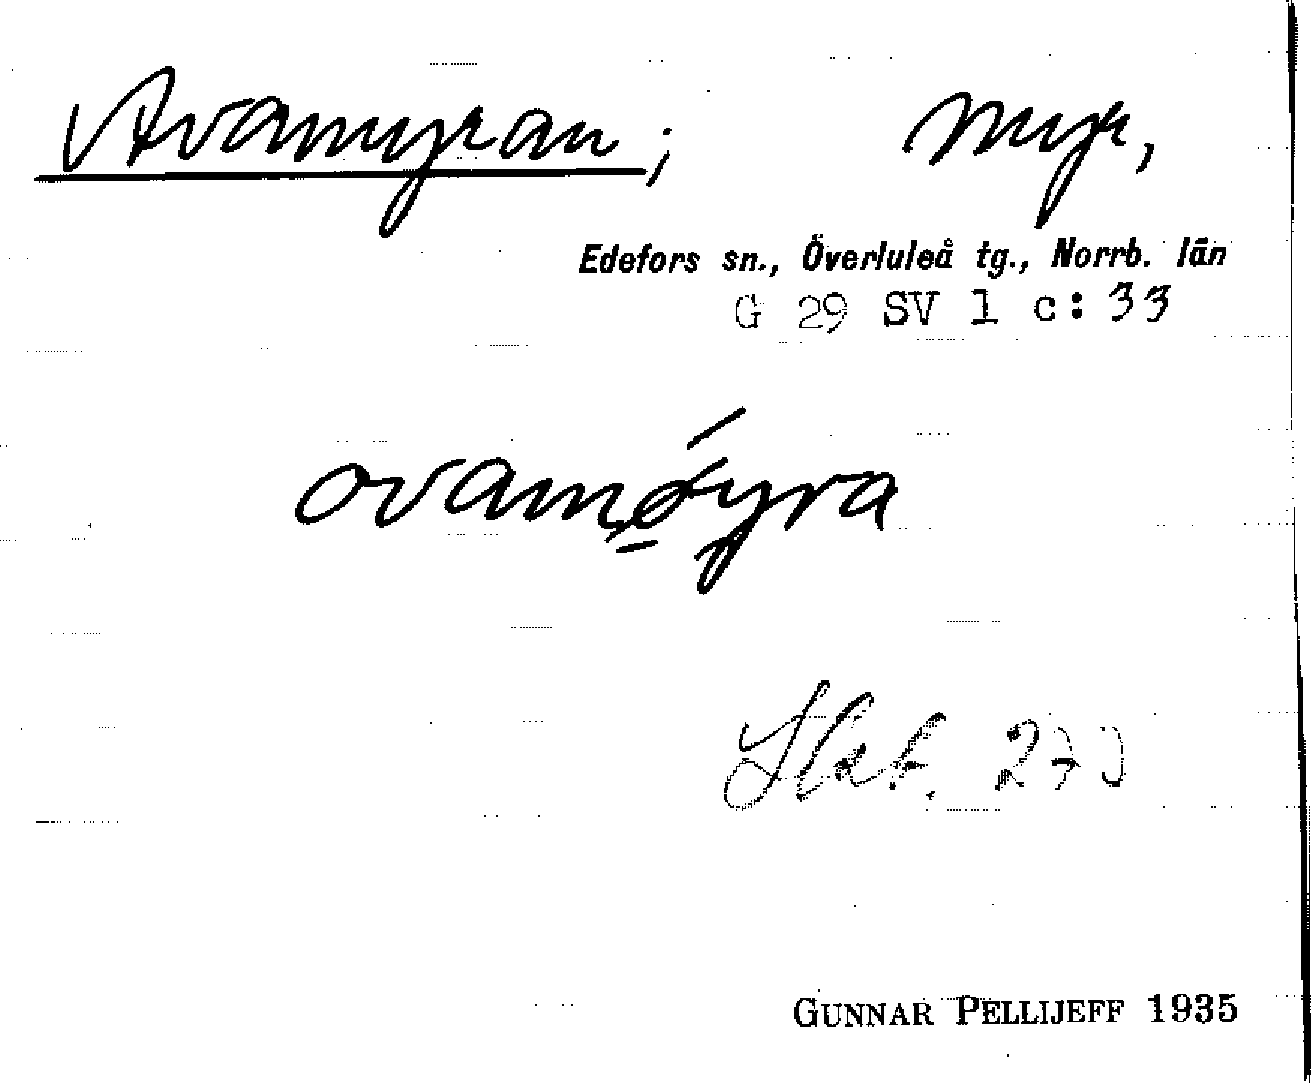 Avamyran; myr,
Edefors sn., Överluleå tg., Norrb. län
G 29 SV 1 c: 33
ovamǿyra
GUNNAR PELLIJEFF 1935